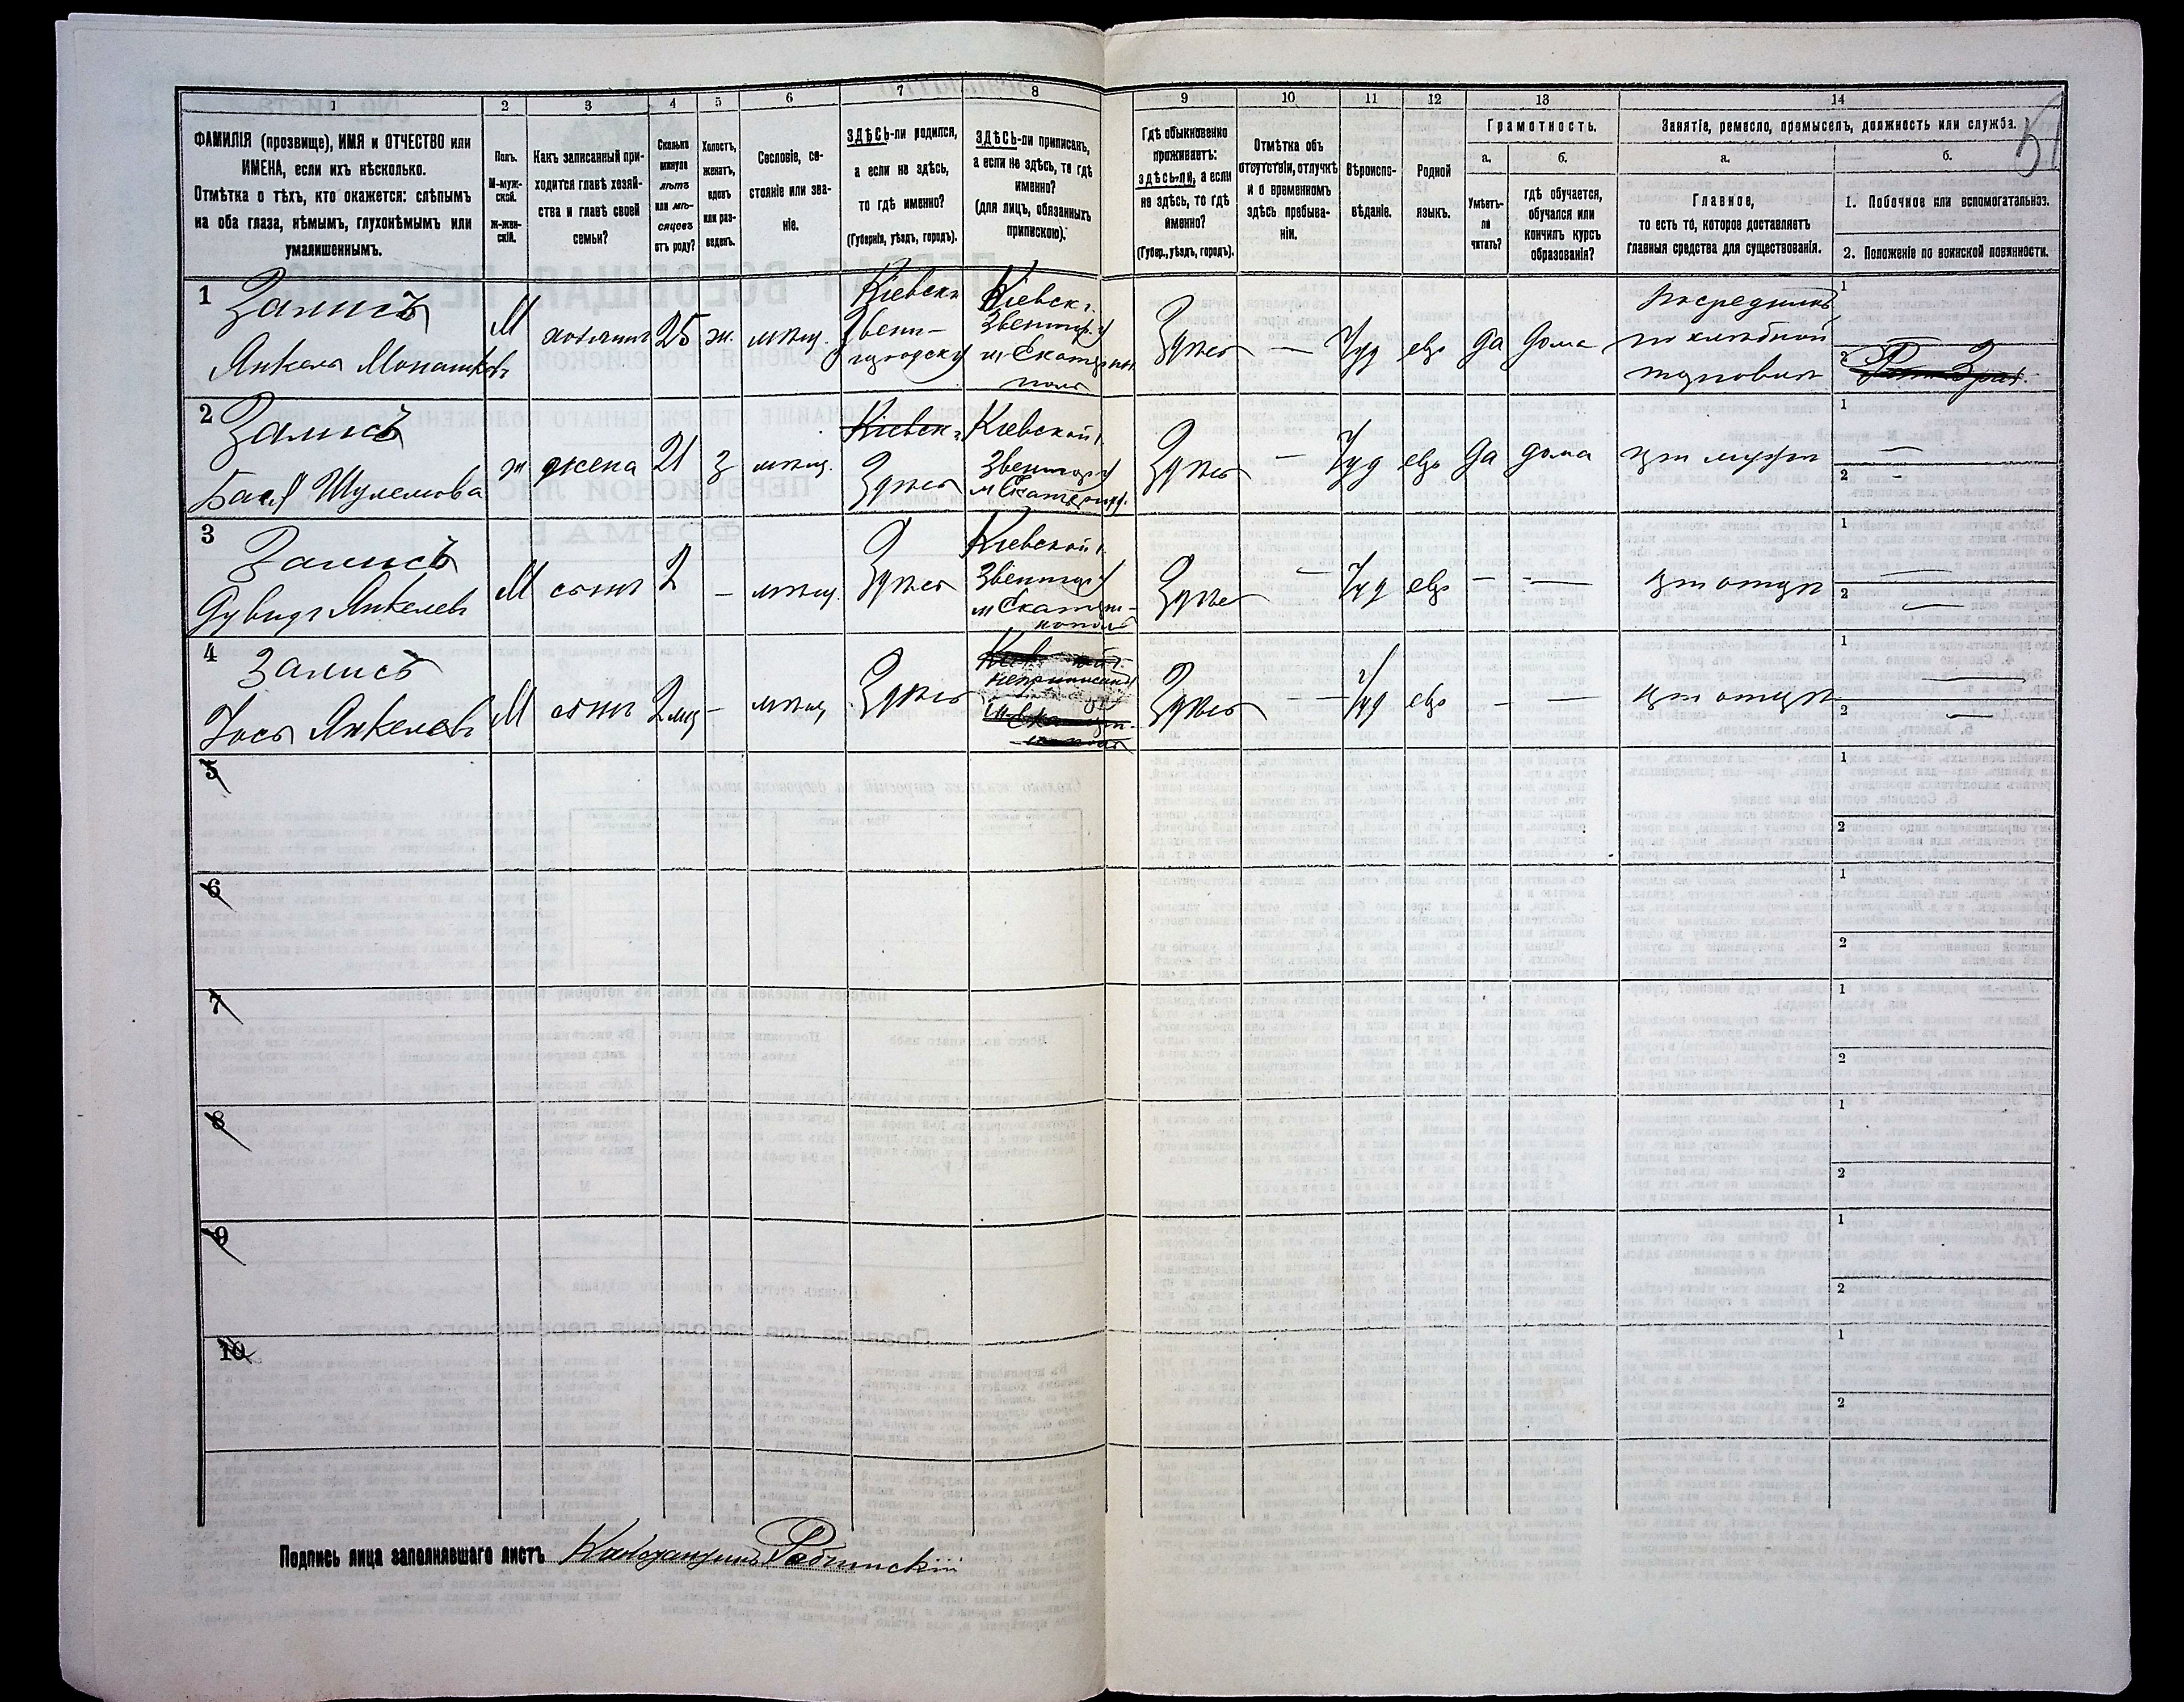 51
1
2
3
4
5
6
7
8
9
10
11
12
13
14
ФАМИЛІЯ (прозвище), ИМЯ и ОТЧЕСТВО или
ИМЕНА, если ихъ нѣсколько.
Отмѣтка о тѣхъ, кто окажется: слѣпымъ
на оба глаза, нѣмымъ, глухонѣмымъ или
умалишеннымъ.
Полъ.
М-муж-
ской.
Ж-жен-
скій.
Какъ записанный при-
ходится главѣ хозяй-
ства и главѣ своей
семьи?
Сколько
минуло
лѣтъ
или мѣ-
сяцевъ
отъ роду?
Холостъ,
женатъ,
вдовъ
или раз-
веденъ.
Сословіе, со-
стояніе или зва-
ніе.
ЗДѢСЬ-ли родился,
а если не здѣсь,
то гдѣ именно?
(Губернія, уѣздъ, городъ).
ЗДѢСЬ-ли приписанъ,
а если не здѣсь, то гдѣ
именно?
(для лицъ, обязанныхъ
припискою).
Гдѣ обыкновенно
проживаетъ:
здѣсь-ли, а если
не здѣсь, то гдѣ
именно?
(Губер., уѣздъ, городъ).
Отмѣтка объ
отсутствіи, отлучкѣ
и о временномъ
здѣсь пребыва-
ніи.
Вѣроиспо-
вѣданіе.
Родной
языкъ.
Грамотность.
а.
Умѣетъ-
ли
читать?
б.
гдѣ обучается,
обучался или
кончилъ курсъ
образованія?
Занятіе, ремесло, промыселъ, должность или служба.
а.
Главное,
то есть то, которое доставляетъ
главныя средства для существованія.
б.
1. Побочное или вспомогательное.
2. Положеніе по воинской повинности.
1
Залисъ
Янкель
М
хозяинъ
25
ж.
мѣщ.
Кіевск
Звени-
городск у
Кіевск г.
Звениг. у
м Екатери
поль
Здѣсь
—
Іуд
евр
да
дома
посредникъ
по хлѣбной
торговлѣ
1
2
2
Залисъ
Бася Шулемова
ж
жена
21
з
мѣщ.
Кіевск г
Здѣсь
Кіевской г.
Звениг у
Здѣсь
—
Іуд
евр
да
дома
при мужѣ
1 —
2 -
3
Залисъ
Дувидъ Янкелевъ
М
сынъ
2
—
мѣщ.
Здѣсь
Кіевской г.
Звениг у
м Екатери-
нополь
Здѣсь
—
Іуд
евр
—
—
при отцѣ
1 —
2 —
4
Залисъ
Іось Янкелевъ
М
сынъ
2 мц
-
мѣщ
Здѣсь
неприписанъ
Здѣсь
—
Іуд
евр
-
—
при отцѣ
1 —
2 —
5
1
2
6
1
2
7
1
2
8
1
2
9
1
2
10
1
2
Подпись лица заполнявшаго листъ